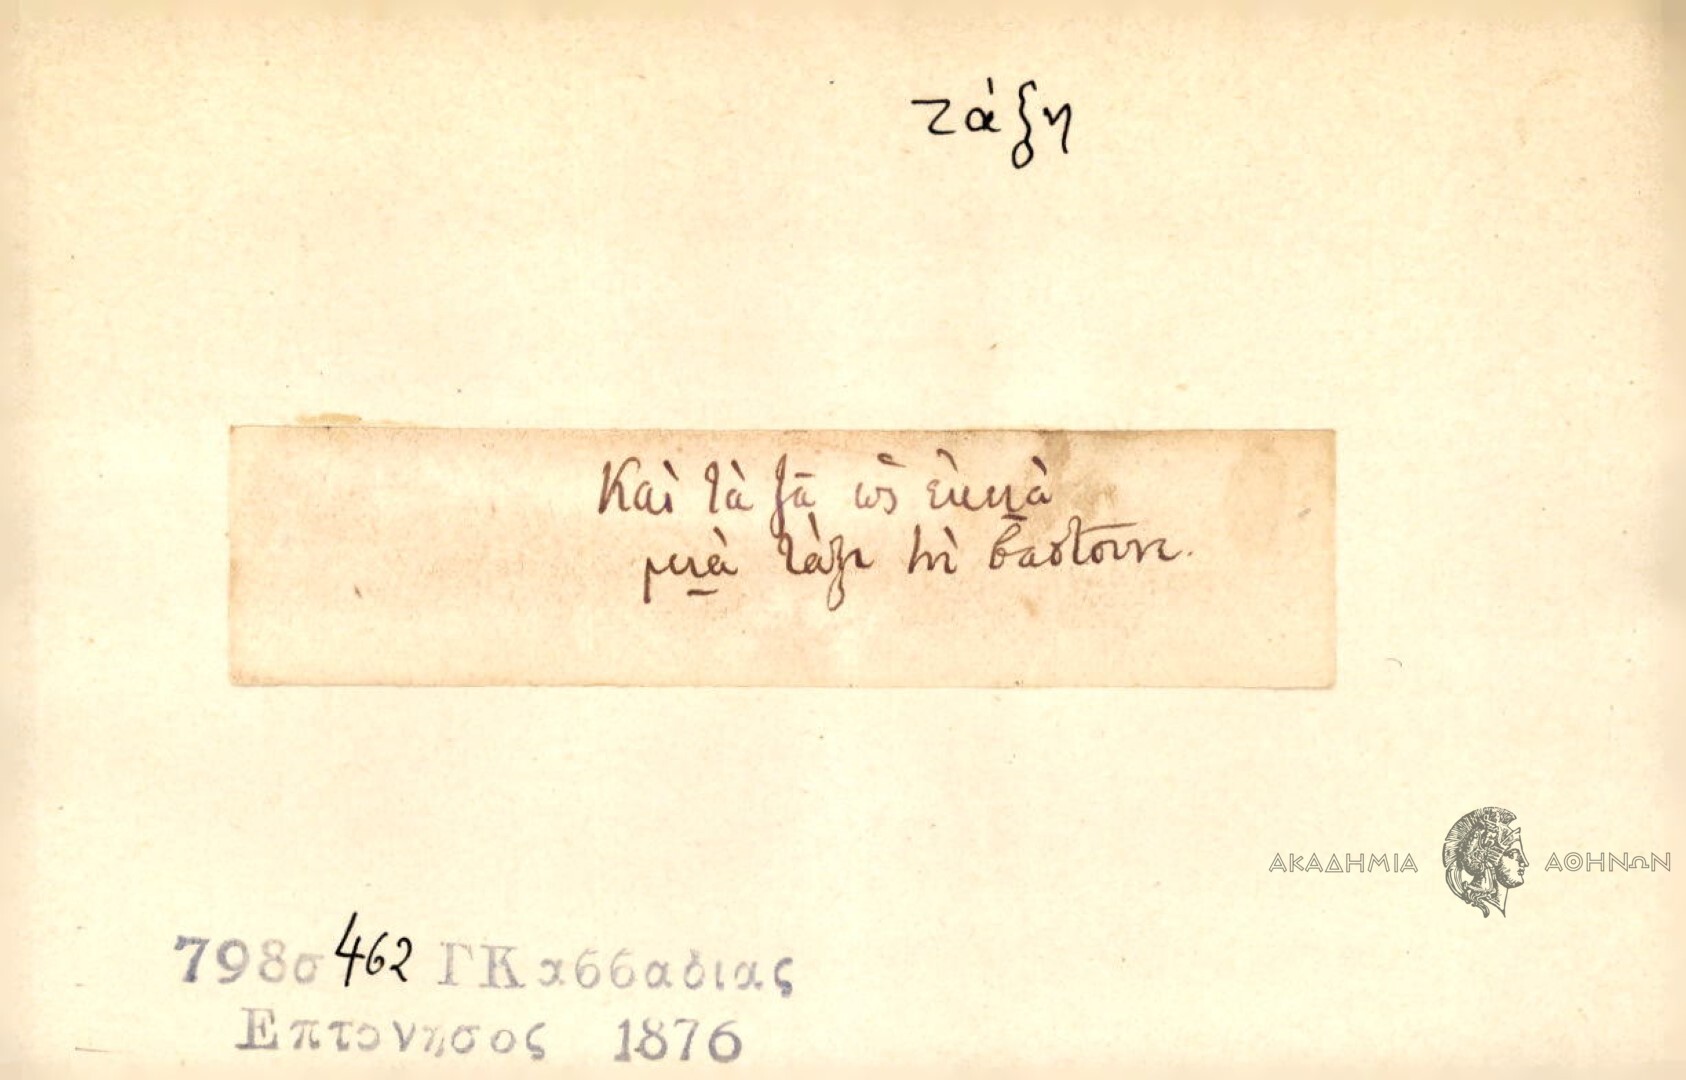 τάξη
Καὶ τὰ ζᾶ ὡς
μιὰ τάξι τὴ βαστοῦνε.
ΑΚΑΔΗΜΙΑ ΑΘΗΝΩΝ
798σ 462 ΓΚασσαδιας
Επτονησος 1876